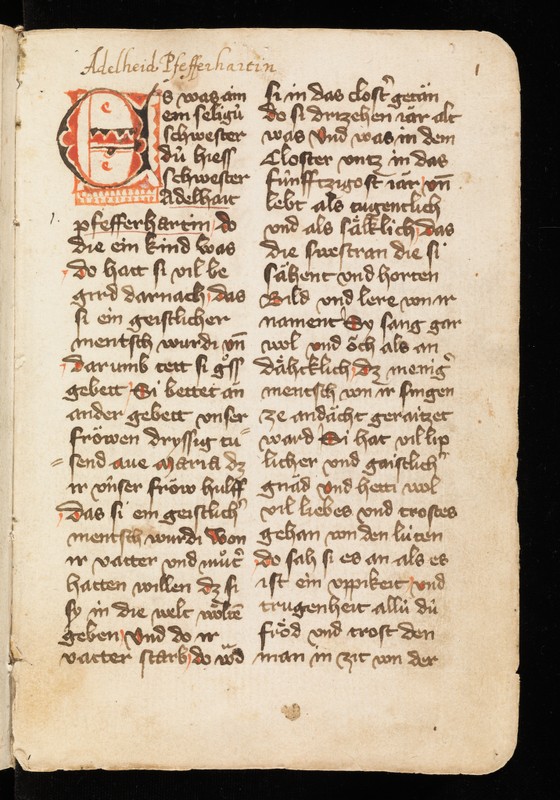 Adelheid Pfefferhartin
1
Es was ain
ein seligü
schwester
dü hiess
schwester
Adelhait
1.
pfefferhartin do
die ein kind was
do hatt si vil be
gird darnach das
si ein geistlicher
mentsch wurdi vn̄
darumb tett si gͦss
gebett Si bettet än
ander gebett vnser
fröwen dryssig tu〃
〃send aue maria dz
ir vnser fröw hulff
das si ein geistlich᷑
mentsch wurdi Won
ir vatter vnd můt᷑
hatten willen dz si
sy in die welt
geben Vnd do ir
vatter starb do
si in das clost᷑ getän
do si drizehen iär alt
was Vnd was in dem
Closter vntz in das
fünfftzigost iär vn̄
lebt als tugentlich
vnd als sälklich das
die swestran die si
sähent vnd horten
Bild vnd lere von ir
nament Sy sang gar
wol vnd öch als an
dähtklich dz menig᷑
mentsch von ir singen
ze andächt geraitzet
ward Si hat vil lip
licher vnd gaistlich᷑
gnäd vnd hetti wol
vil liebes vnd trostes
gehan von den lüten
do sah si es an als es
ist ein vppikeit vnd
trugenheit allü dü
fröd vnd trost den
man in zit von der